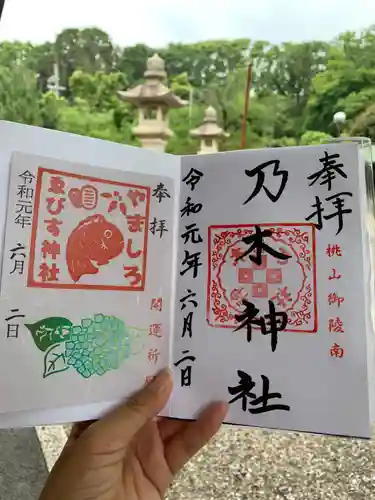 奉拝
桃山御陵南
乃木神社
令和元年六月二日
奉拝
やましろ
ゑびす神社
令和元年
六月
二日
開運祈